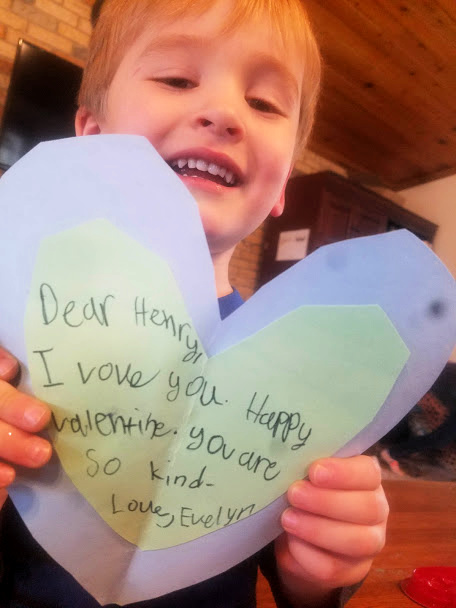 Dear Henry,
I vove you. Happy
valentine. you are
So kind-
Love, Evelyn